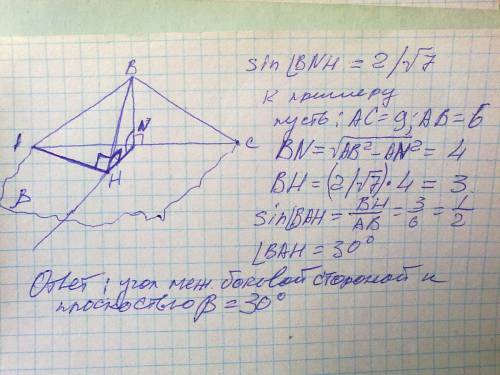 B
A
N
C
H
B
sin∠BNH = 2/√7
к примеру
пусть: AC = 9; AB = 6
BN = √AB² - AN² = 4
BH = (2/√7)·4 = 3
sin∠BAH = BH/AB = 3/6 = 1/2
∠BAH = 30°
Ответ: угол меж. боковой стороной и
плоскостью β = 30°